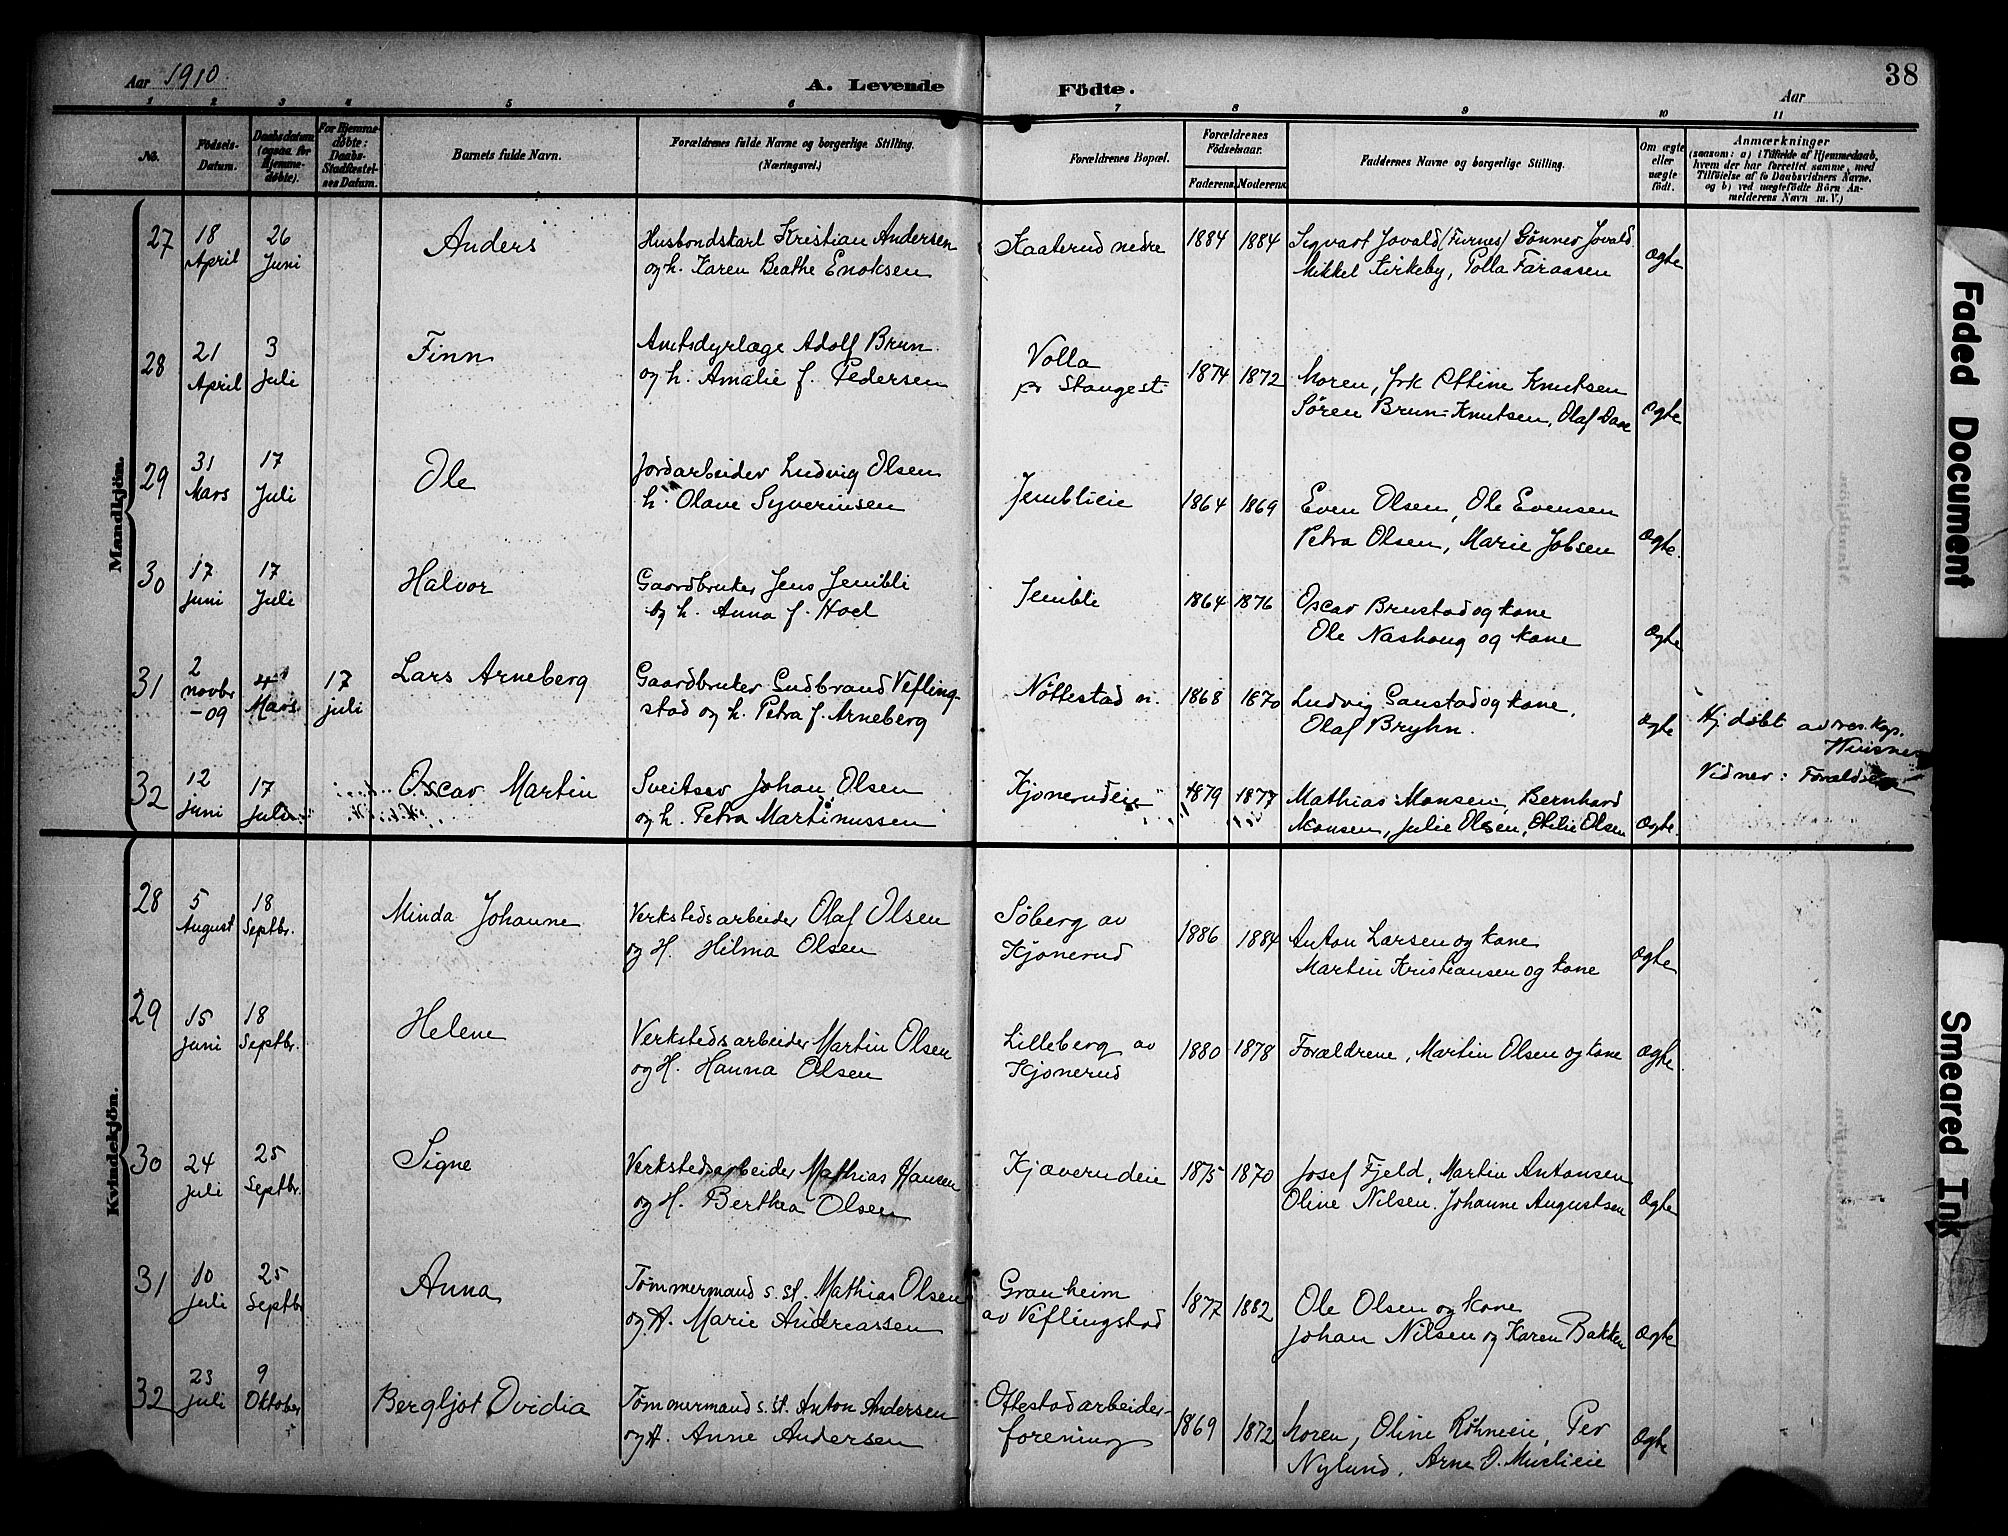 38
Aar 1910.
A. Levende Födte.
Aar
1 2 3 4 5 6 7 8 9 10 11
No.
Födsels-
Datum.
Daabsdatum
(ogsaa for
Hjemme-
döbte).
For Hjemme-
döbte:
Daabs-
Stadfæstel-
ses Datum.
Barnets fulde Navn.
Forældrenes fulde Navne og borgerlige Stilling.
(Næringsvei.)
Forældrenes Bopæl.
Forældrenes
Födselsaar.
Faderens. Moderens.
Faddernes Navne og borgerlige Stilling.
Om ægte
eller
uægte
födt.
Anmærkninger
(saasom: a) i Tilfælde af Hjemmedaab,
hvem der har forrettet samme, med
Tilföielse af to Daabsvidners Navne,
og b) ved uægtefödte Börn An-
melderens Navn m. V.)
Mandkjön.
27
18
April
26
Juni
Anders
Husbondskarl Kristian Andersen
og h. Karen Beathe Enoksen
Kaaterud nedre
1884
1884
Sigvart Jovald (Furnes) Gønner Jovald
Mikkel Kirkeby, Polla Faraasen
ægte
28
21
April
3
Juli
Finn
Amtsdyrlæge Adolf Brun
og h. Amalie f. Pedersen
Volla
pr Stangest.
1874
1872
Moren, frk Ottine Knutsen
Søren Brun-Knutsen, Olaf Dore
ægte
29
31
Mars
17
Juli
Ole
Jordarbeider Ludvig Olsen
h. Olave Syverinsen
Jemblieie
1864
1869
Even Olsen, Ole Evensen
Petra Olsen, Marie Jobsen
ægte.
30
17
juni
17
Juli
Halvor
Gaardbruker Jens Jemble
og h. Anna f. Hoel
Jemble
1864
1876
Oscar Brustad og kone
Ole Nashoug og kone
ægte
31
2
novbr
-09
4
Mars
17
juli
Lars Arneberg
Gaardbruker Gudbrand Vefling-
stad og h. Petra f. Arneberg
Nøttestad n.
1868
1870
Ludvig Saustad og kone,
Olaf Bryhn.
ægte
Hj. døbt av res. kap.
Vidner: Forældre
32
12
juni
17
Juli
Oscar Martin
Sveitser Johan Olsen
og h. Petra Martinussen
Kjonerudeie
1879
1877
Mathias Monsen, Bernhard
Monsen, Julie Olsen, Otilie Olsen
ægte.
Kvindekjön.
28
5
August
18
Septbr.
Minda Johanne
Verkstedsarbeider Olaf Olsen
og H. Hilma Olsen
Søberg av
Kjonerud
1886
1884
Anton Larsen og kone
Martin Kristiansen og kone
ægte
29
15
juni
18
Septbr.
Helene
Verkstedsarbeider Martin Olsen
og H. Hanna Olsen
Lilleberg av
Kjonerud
1880
1878
Forældrene, Martin Olsen og kone
ægte
30
24
juli
25
Septbr.
Signe
Verkstedsarbeider Mathias Hansen
og H. Berthea Olsen
Kjaverudeie
1875
1870
Josef Fjeld, Martin Antonsen
Oline Nilsen, Johanne Augustsen
ægte
31
10
juli
25
Septbr
Anna
Tømmermand s.st. Mathias Olsen
og H. Marie Andreassen
Granheim
av Veflingstad
1877
1882
Ole Olsen og kone
Johan Nilsen og Karen Bakken
ægte
32
23
juli
9
Oktober
Bergljot Ovidia
Tømmermand s.st. Anton Andersen
og H. Anne Andersen
Ottestad arbeider-
forening
1869
1872
Moren, Oline Røhneie, Per
Nylund, Arne O. Muslieie
ægte
Faded Document
Smeared Ink